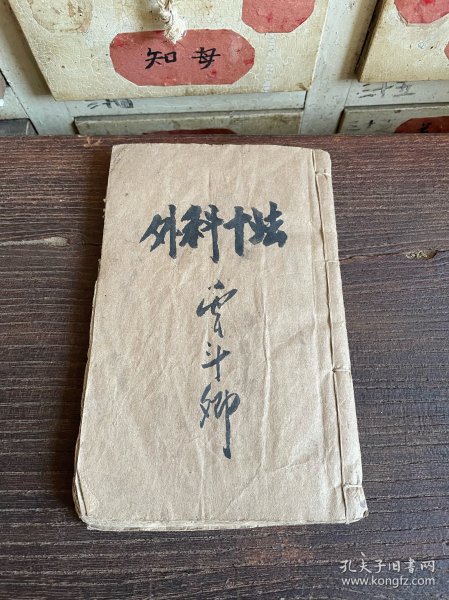 知母
外科十法
斗卿
孔夫子旧书网
www.kongfz.com